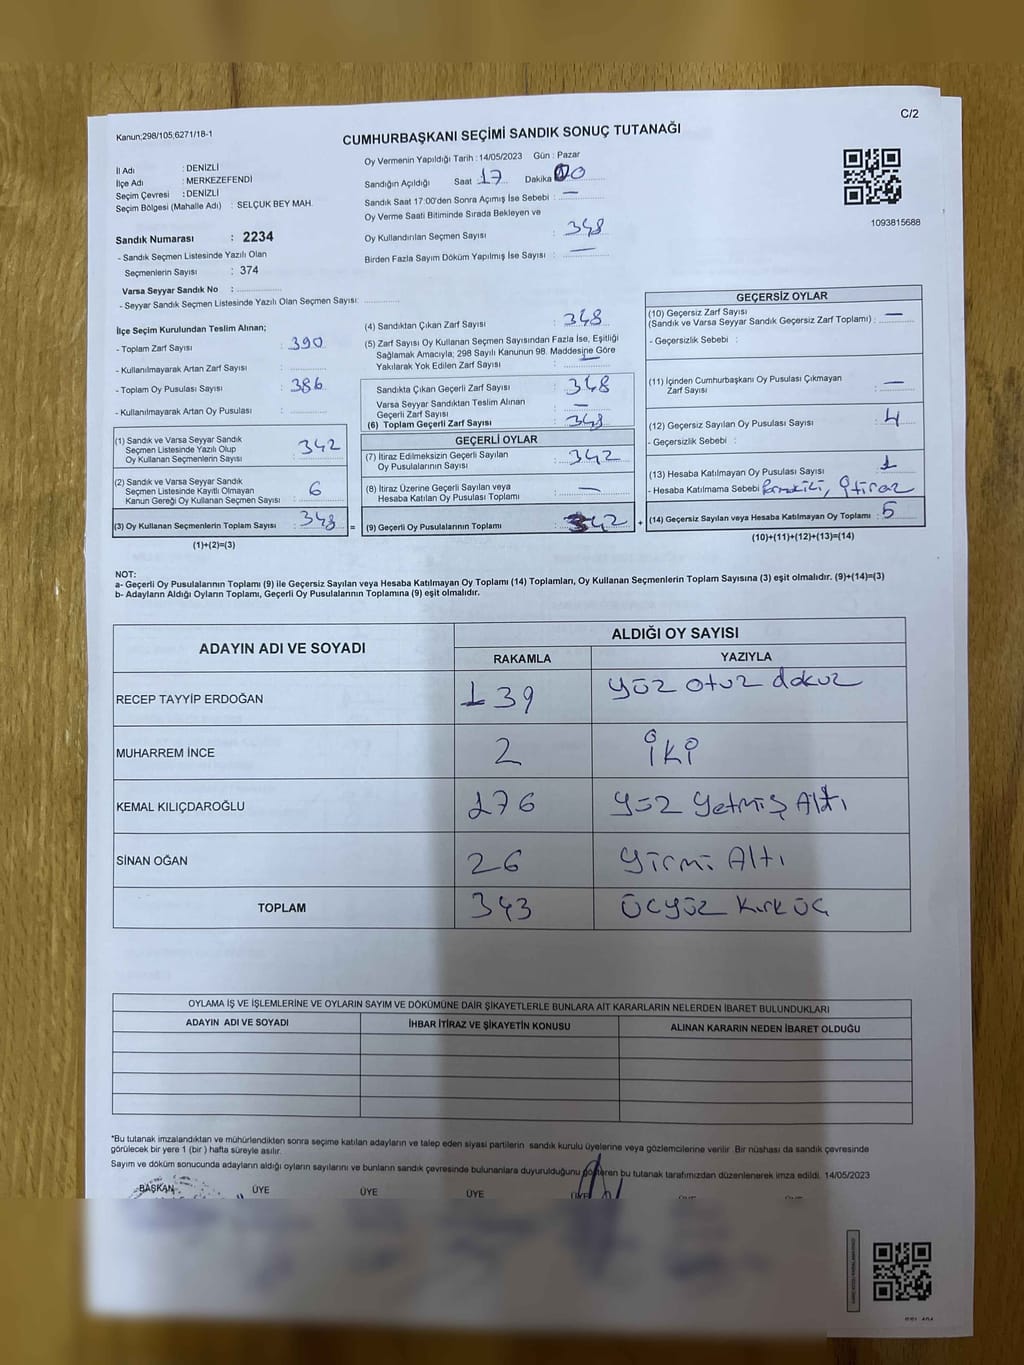 C/2
Kanun;298/105;6271/18-1
CUMHURBAŞKANI SEÇİMİ SANDIK SONUÇ TUTANAĞI
İl Adı : DENİZLİ
İlçe Adı : MERKEZEFENDİ
Seçim Çevresi : DENİZLİ
Seçim Bölgesi (Mahalle Adı) : SELÇUK BEY MAH.
Sandık Numarası : 2234
- Sandık Seçmen Listesinde Yazılı Olan
Seçmenlerin Sayısı : 374
Varsa Seyyar Sandık No :
- Seyyar Sandık Seçmen Listesinde Yazılı Olan Seçmen Sayısı:
Oy Vermenin Yapıldığı Tarih : 14/05/2023 Gün : Pazar
Sandığın Açıldığı Saat 17 Dakika 00
Sandık Saat 17:00'den Sonra Açımış İse Sebebi : —
Oy Verme Saati Bitiminde Sırada Bekleyen ve
Oy Kullandırılan Seçmen Sayısı : 348
Birden Fazla Sayım Döküm Yapılmış İse Sayısı : —
1093815688
İlçe Seçim Kurulundan Teslim Alınan;
- Toplam Zarf Sayısı : 390
- Kullanılmayarak Artan Zarf Sayısı :
- Toplam Oy Pusulası Sayısı : 386
- Kullanılmayarak Artan Oy Pusulası :
(1) Sandık ve Varsa Seyyar Sandık
Seçmen Listesinde Yazılı Olup
Oy Kullanan Seçmenlerin Sayısı : 342
(2) Sandık ve Varsa Seyyar Sandık
Seçmen Listesinde Kayıtlı Olmayan
Kanun Gereği Oy Kullanan Seçmen Sayısı : 6
(3) Oy Kullanan Seçmenlerin Toplam Sayısı : 348 =
(1)+(2)=(3)
(4) Sandıktan Çıkan Zarf Sayısı : 348
(5) Zarf Sayısı Oy Kullanan Seçmen Sayısından Fazla İse, Eşitliği
Sağlamak Amacıyla; 298 Sayılı Kanunun 98. Maddesine Göre
Yakılarak Yok Edilen Zarf Sayısı :
Sandıkta Çıkan Geçerli Zarf Sayısı : 348
Varsa Seyyar Sandıktan Teslim Alınan
Geçerli Zarf Sayısı : —
(6) Toplam Geçerli Zarf Sayısı : 348
GEÇERLİ OYLAR
(7) İtiraz Edilmeksizin Geçerli Sayılan
Oy Pusulalarının Sayısı : 342
(8) İtiraz Üzerine Geçerli Sayılan veya
Hesaba Katılan Oy Pusulası Toplamı : —
(9) Geçerli Oy Pusulalarının Toplamı : 342 +
GEÇERSİZ OYLAR
(10) Geçersiz Zarf Sayısı
(Sandık ve Varsa Seyyar Sandık Geçersiz Zarf Toplamı) : —
- Geçersizlik Sebebi :
(11) İçinden Cumhurbaşkanı Oy Pusulası Çıkmayan
Zarf Sayısı : —
(12) Geçersiz Sayılan Oy Pusulası Sayısı : 4
- Geçersizlik Sebebi :
(13) Hesaba Katılmayan Oy Pusulası Sayısı : 1
- Hesaba Katılmama Sebebi : İtiraz
(14) Geçersiz Sayılan veya Hesaba Katılmayan Oy Toplamı : 5
(10)+(11)+(12)+(13)=(14)
NOT:
a- Geçerli Oy Pusulalarının Toplamı (9) ile Geçersiz Sayılan veya Hesaba Katılmayan Oy Toplamı (14) Toplamları, Oy Kullanan Seçmenlerin Toplam Sayısına (3) eşit olmalıdır. (9)+(14)=(3)
b- Adayların Aldığı Oyların Toplamı, Geçerli Oy Pusulalarının Toplamına (9) eşit olmalıdır.
ADAYIN ADI VE SOYADI
ALDIĞI OY SAYISI
RAKAMLA YAZIYLA
RECEP TAYYİP ERDOĞAN 139 Yüz otuz dokuz
MUHARREM İNCE 2 İki
KEMAL KILIÇDAROĞLU 176 Yüz Yetmiş Altı
SİNAN OĞAN 26 Yirmi Altı
TOPLAM 343 Üçyüz Kırk Üç
OYLAMA İŞ VE İŞLEMLERİNE VE OYLARIN SAYIM VE DÖKÜMÜNE DAİR ŞİKAYETLERLE BUNLARA AİT KARARLARIN NELERDEN İBARET BULUNDUKLARI
ADAYIN ADI VE SOYADI İHBAR İTİRAZ VE ŞİKAYETİN KONUSU ALINAN KARARIN NEDEN İBARET OLDUĞU
*Bu tutanak imzalandıktan ve mühürlendikten sonra seçime katılan adayların ve talep eden siyasi partilerin sandık kurulu üyelerine veya gözlemcilerine verilir. Bir nüshası da sandık çevresinde
görülecek bir yere 1 (bir ) hafta süreyle asılır.
Sayım ve döküm sonucunda adayların aldığı oyların sayılarını ve bunların sandık çevresinde bulunanlara duyurulduğunu gösteren bu tutanak tarafımızdan düzenlenerek imza edildi. 14/05/2023
BAŞKAN ÜYE ÜYE ÜYE ÜYE